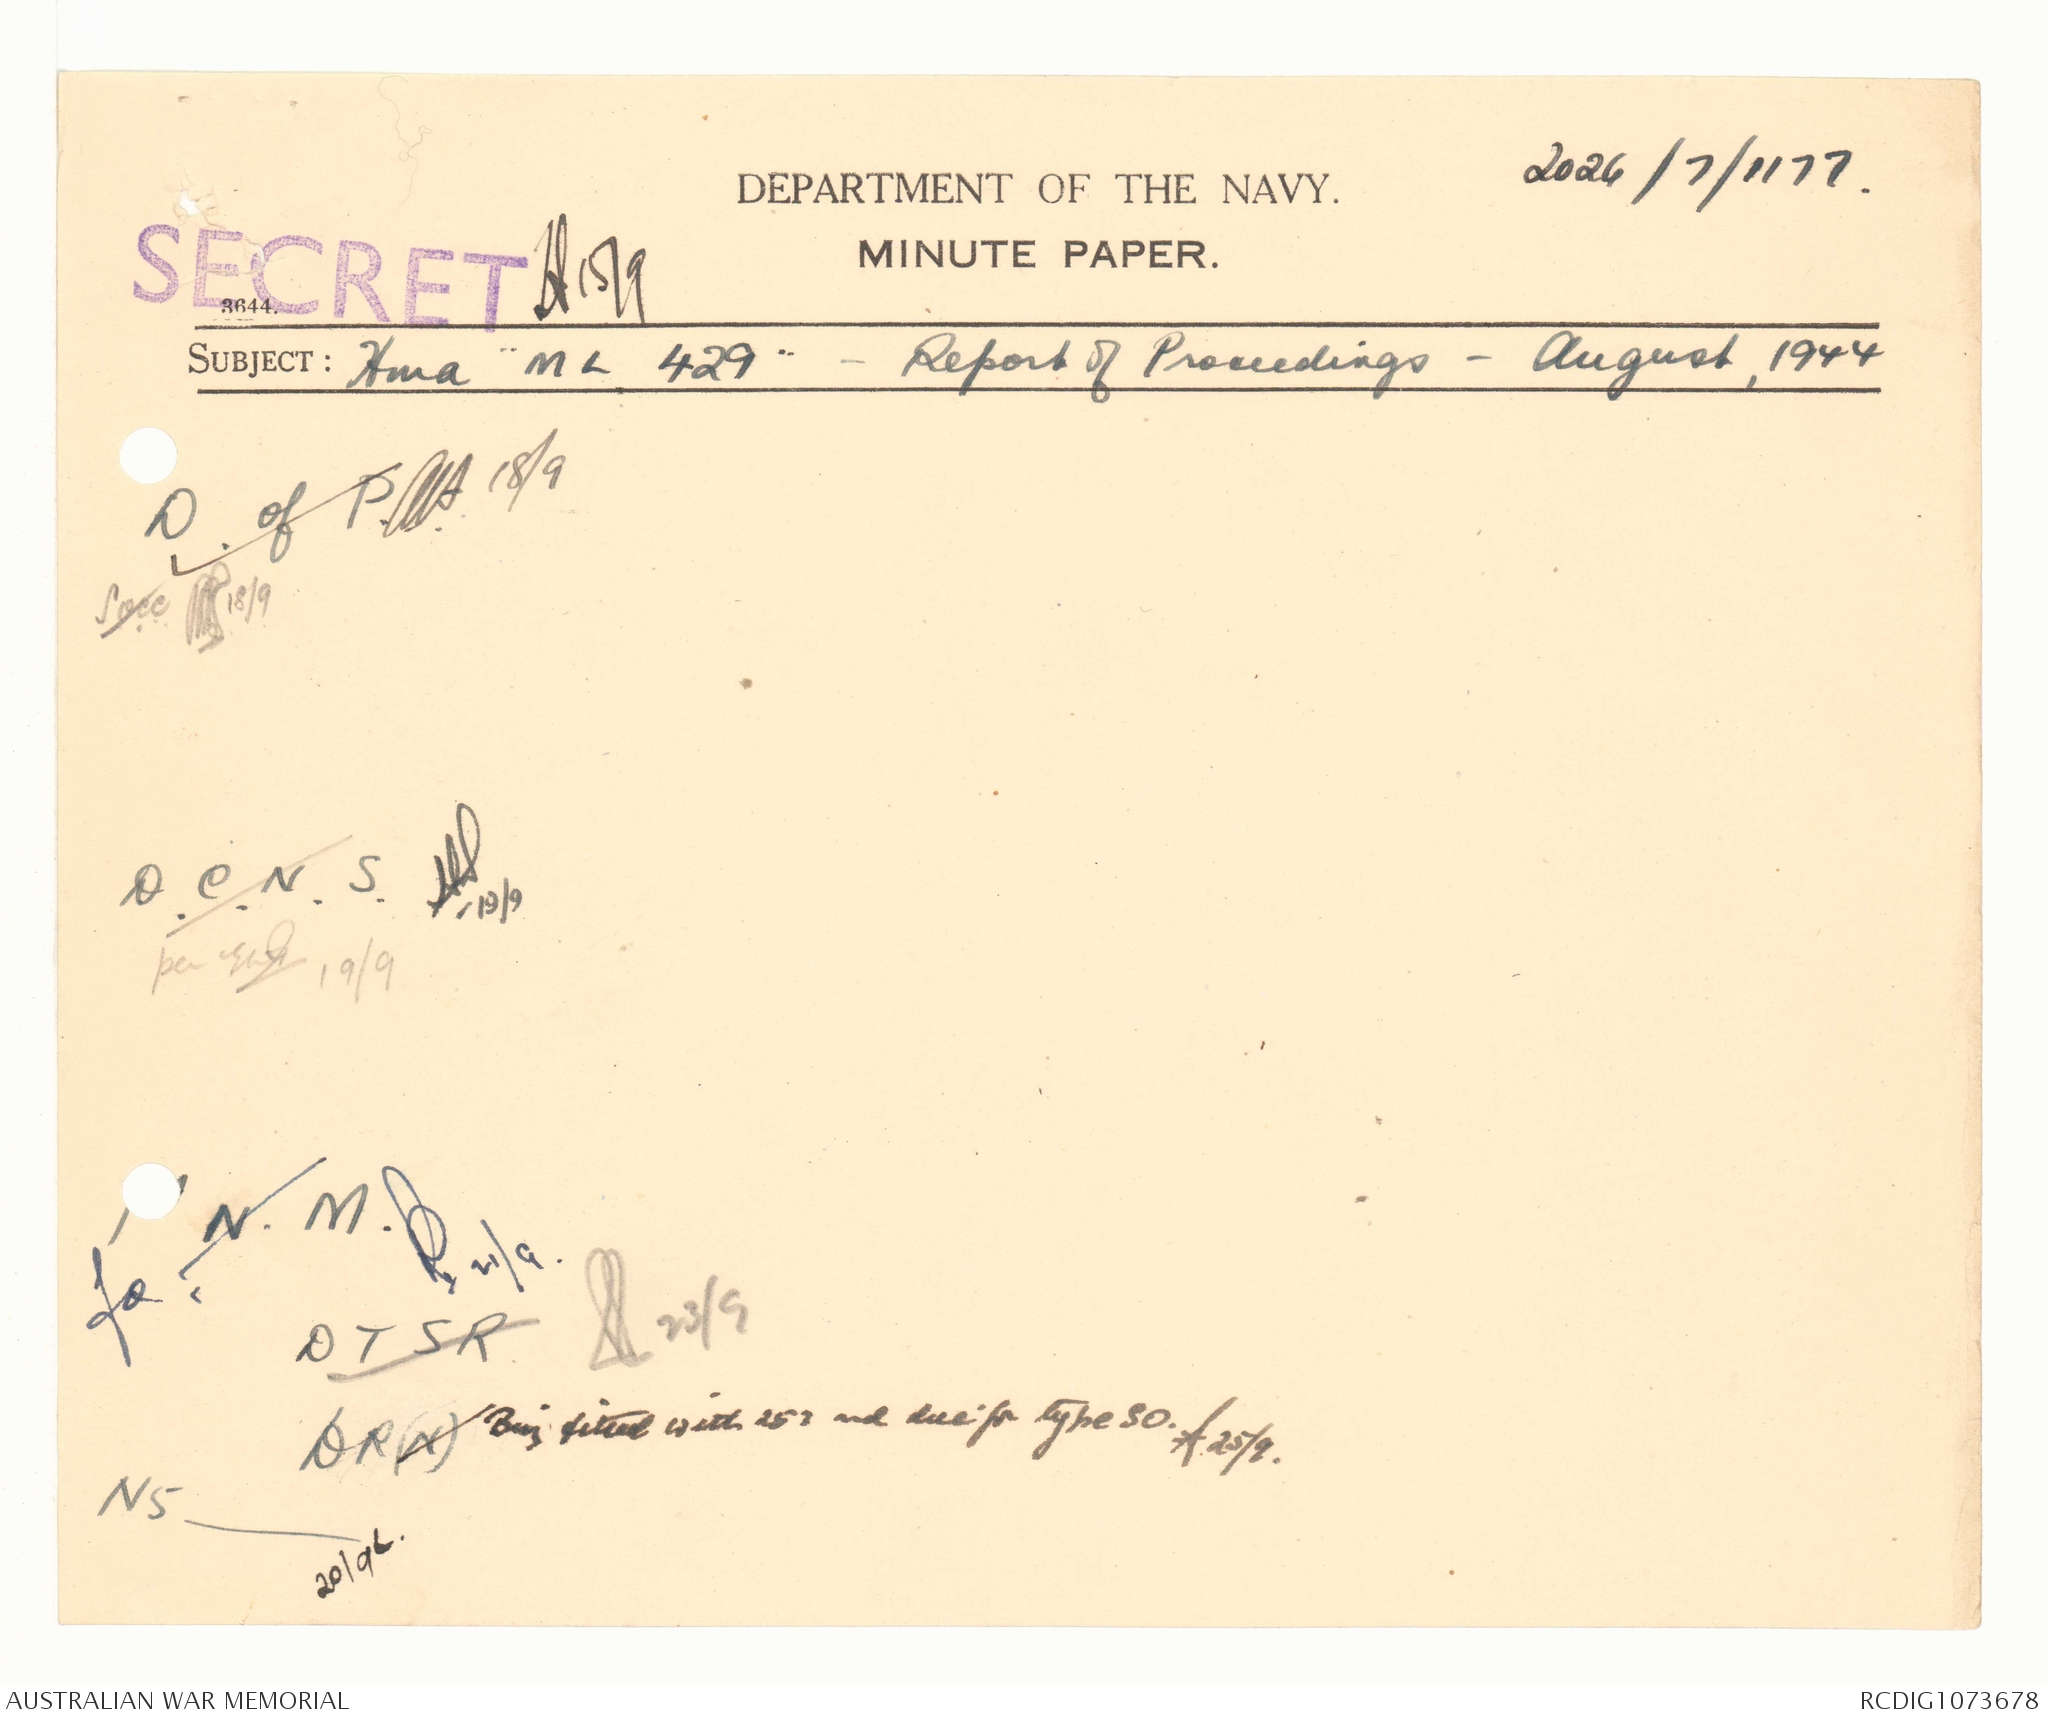 2026/7/1177.
DEPARTMENT OF THE NAVY.
MINUTE PAPER.
SECRET 15/9
3644.
SUBJECT: Hma "ML 429" - Report of Proceedings - August, 1944
D. of P. 18/9
18/9
D.C.N.S. 19/9
19/9
N.M. 21/9.
for
DTSR 23/9
DR(N) Being fitted with 253 and due for type SO. 25/9.
NS
20/9
AUSTRALIAN WAR MEMORIAL
RCDIG1073678